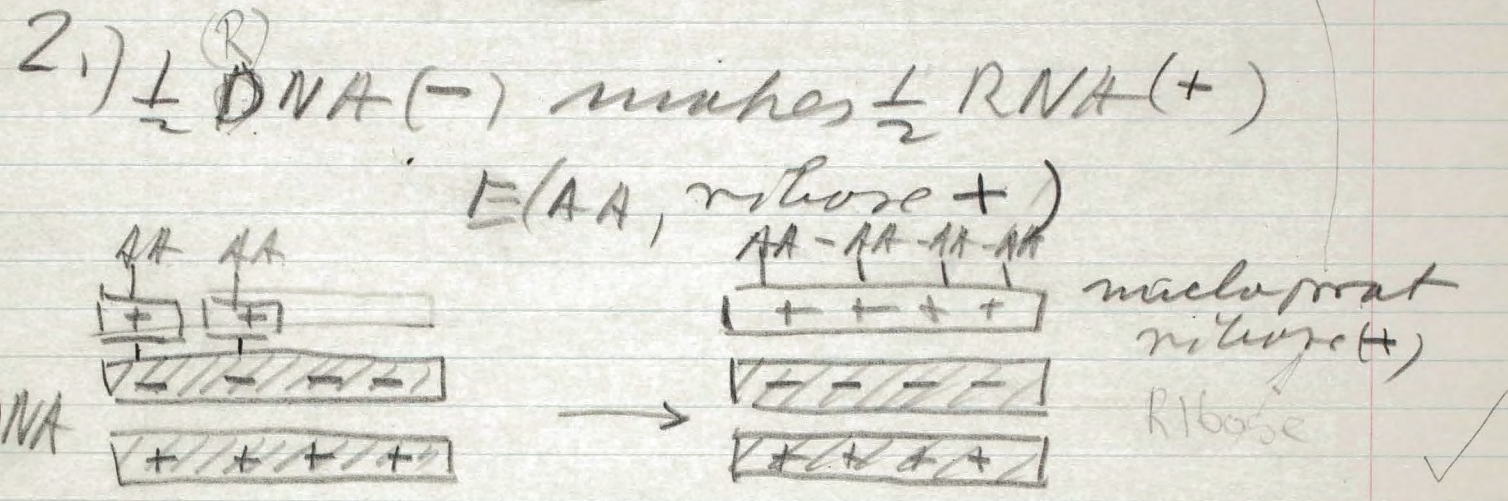 (R)
2.) 1/2 DNA (-) makes 1/2 RNA (+)
E(AA, ribose +)
AA AA
AA - AA - AA - AA
+ +
+ + + +
nucleoprot
ribose (+)
- - - -
- - - -
Ribose
NA
+ + + +
+ + + +